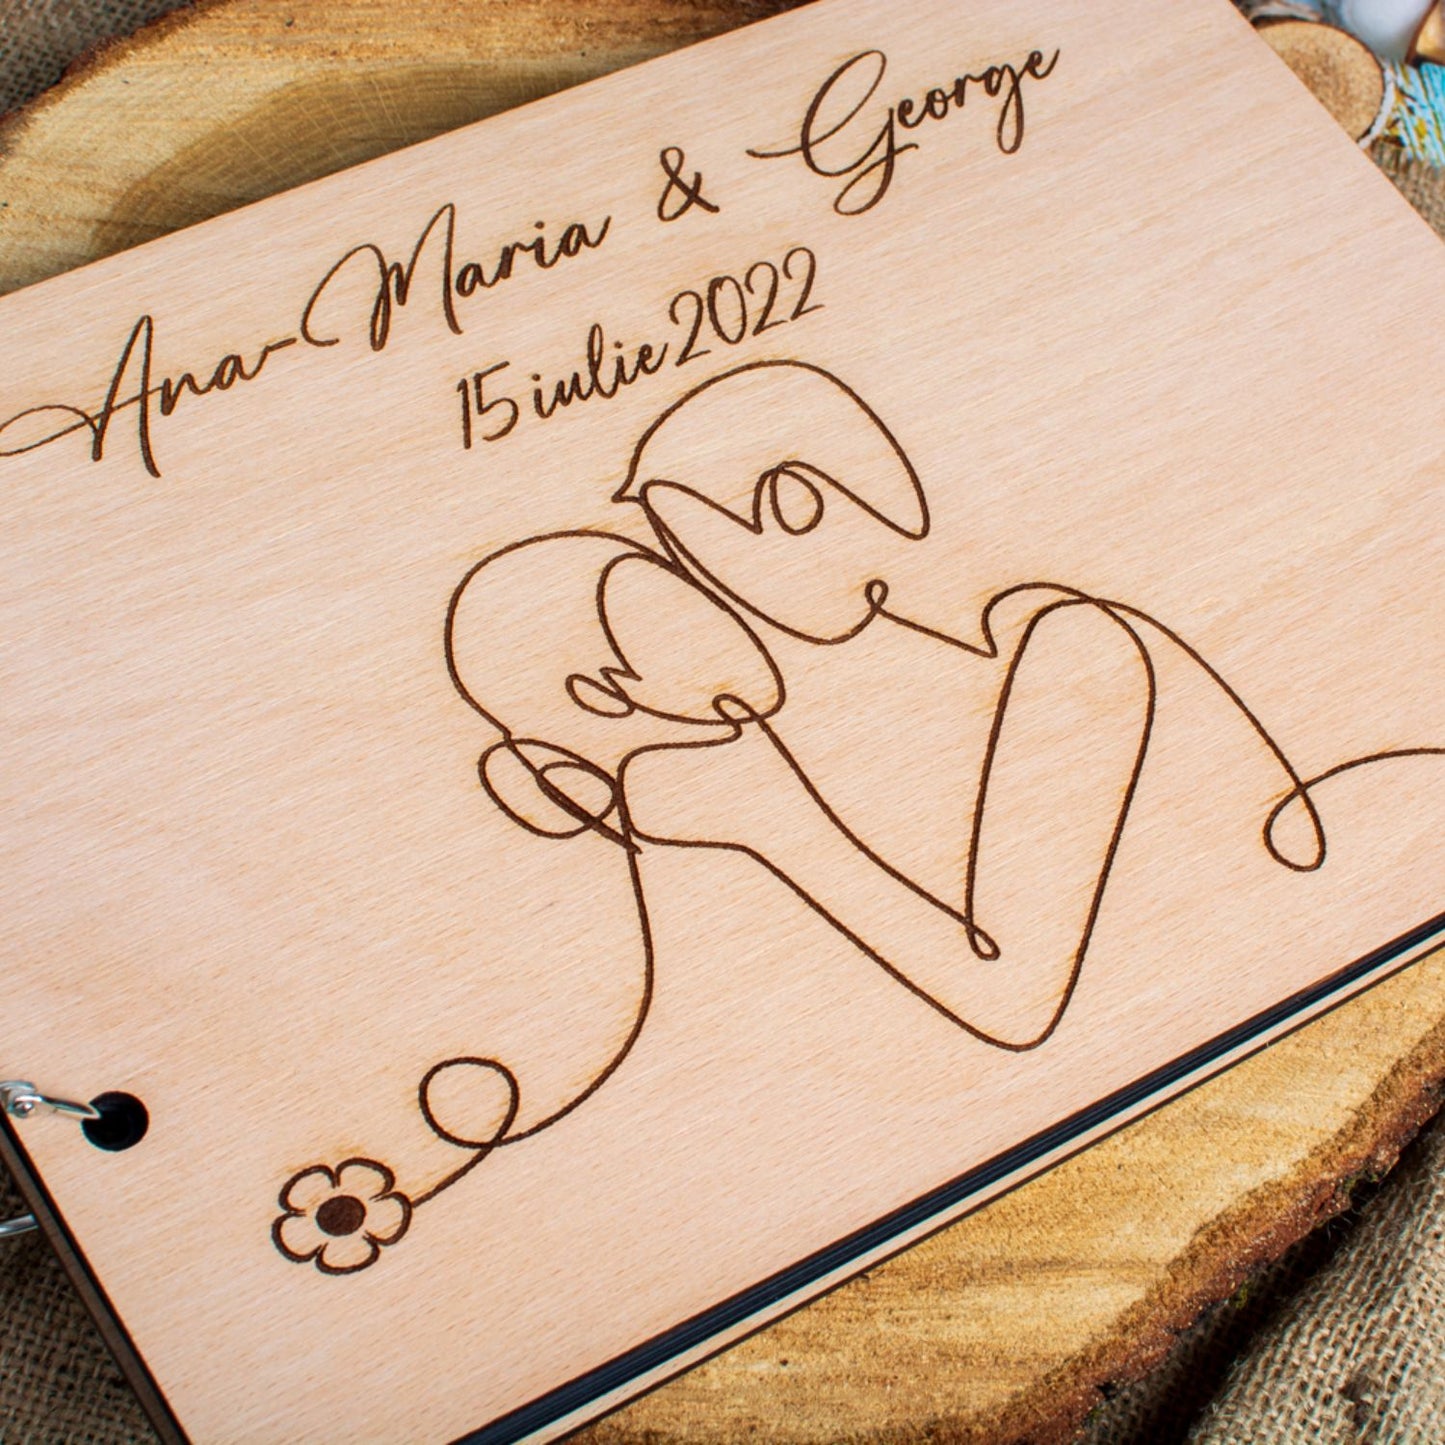 Ana-Maria & George
15 iulie 2022